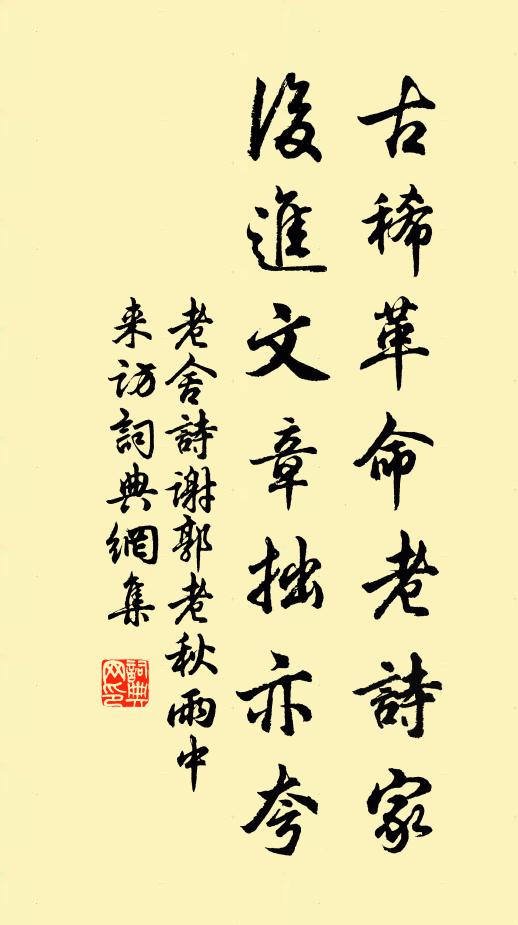 古稀革命老詩家
後進文章拙亦夸
老舍詩谢郭老秋雨中
来访詞典網集
詞典网印